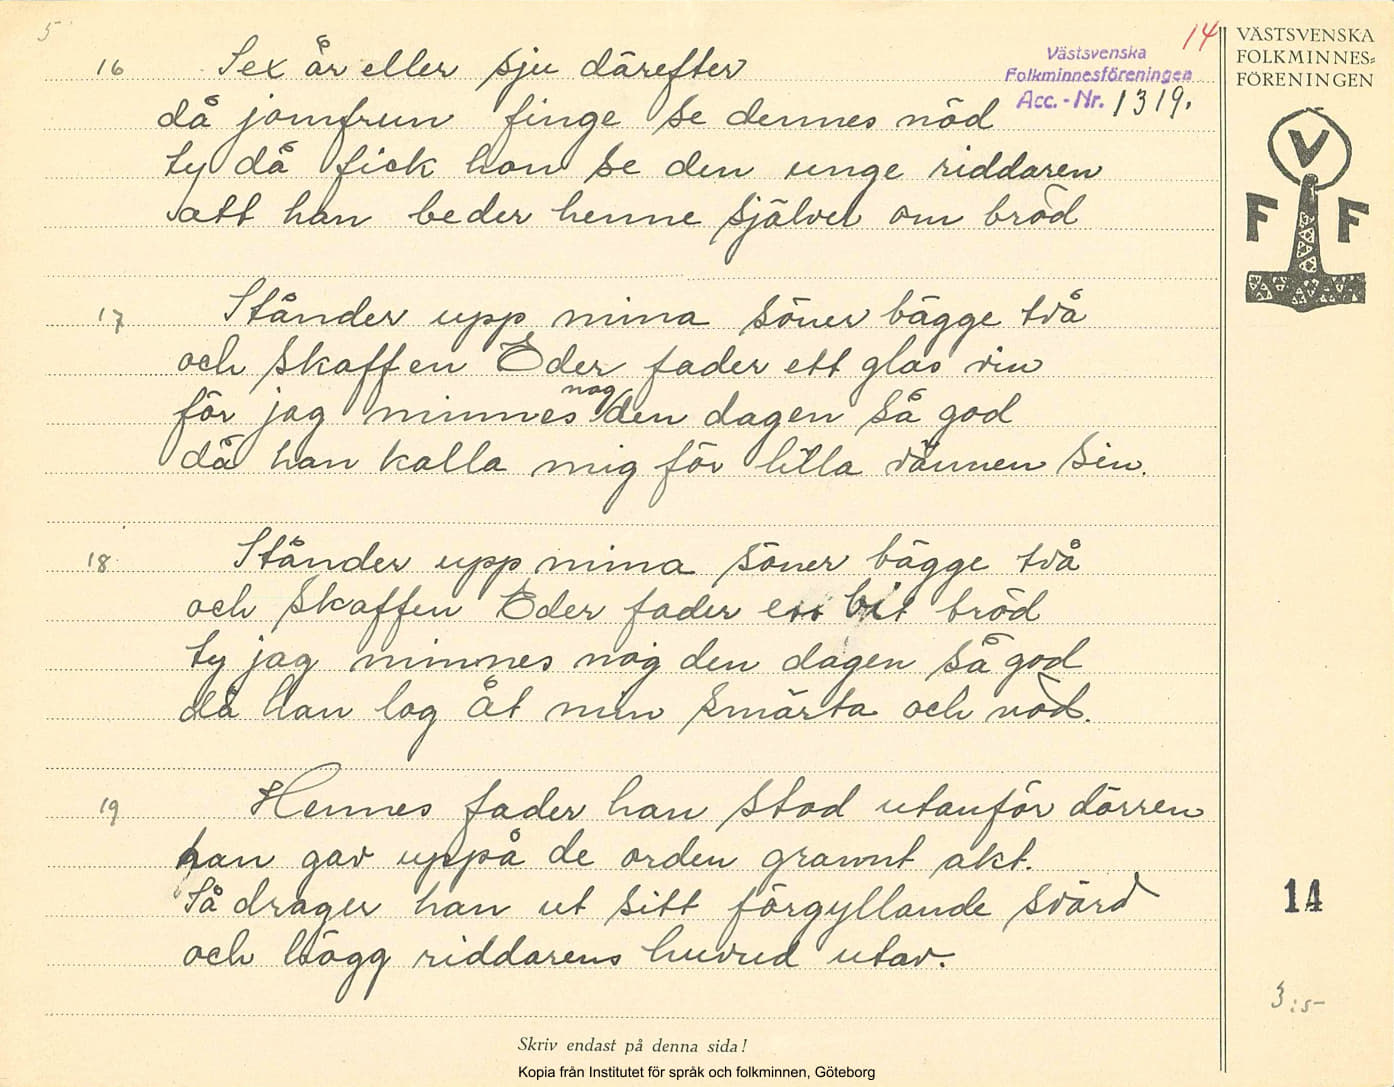 5
14
16 Sex år eller sju därefter
då jomfrun finge se dennes nöd
ty då fick hon se den unge riddaren
att han beder henne självel om bröd
17 Ståndер upp mina söner bägge två
och skaffen Eder fader ett glas vin
för jag minnes nog den dagen så god
då han kalla mig för lilla vännen sin.
18 Stånder upp mina söner bägge två
och skaffen Eder fader en bit bröd
ty jag minnes nog den dagen så god
då han log åt min smärta och nöd.
19 Hennes fader han stod utanför dörren
han gav uppå de orden grannt akt.
Så drager han ut sitt förgyllande svärd
och högg riddarens huvud utav.
Västsvenska
Folkminnesföreningen
Acc.-Nr. 1319.
VÄSTSVENSKA
FOLKMINNES=
FÖRENINGEN
V
F F
14
3:5-
Skriv endast på denna sida!
Kopia från Institutet för språk och folkminnen, Göteborg